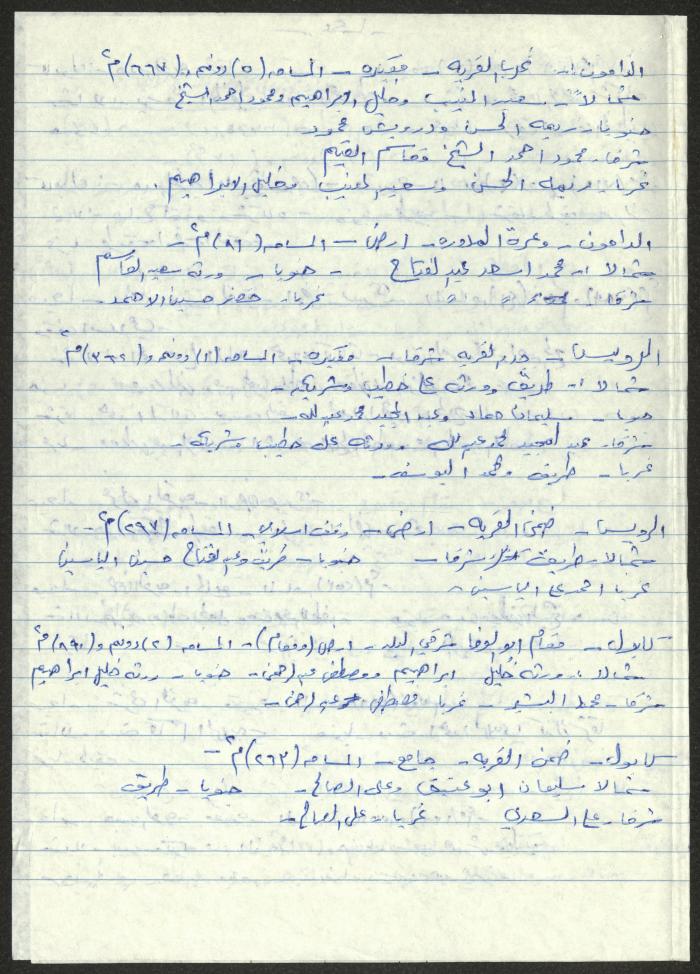 الدامون :- غرب القرية - مقبرة - المساحه (٥) دونم و (٦٦٧) م٢
شمالاً - سعيد الذيب وخليل ابراهيم ومحمود احمد الشيخ
جنوبا - ربيعه الحسن ودرويش محمود
شرقا - محمود احمد الشيخ وقاسم القيم
غربا - ربيعه الحسن وسعيد الذيب وخليل الابراهيم .
الدامون - وعرة - ارض - المساحه (٨١) م٢ -
شمالا :- محمد اسعد عبد الفتاح - جنوبا - ورثة سعيد القاسم
شرقا :- " " " غربا - خضر حسين الاحمد -
الرويس - القريه شرقا - مقبره - المساحه (١) دونم و (٣٦٢) م٢
شمالا :- طريق وورثة علي خطيب وشريكه -
جنوبا - سليمان حماد وعبد المجيد محمد عبد الله -
شرقا - عبد المجيد محمد عبد الله وورثه علي خطيب وشريكه -
غربا - طريق ومحمد اليوسف -
الرويس - ضمن القريه - ارض - وقف اسلامي - المساحه (٢٩٧) م٢ -
شمالا - طريق شرقا - جنوبا - طريق وعبد الفتاح حسين الياسين
غربا احمد علي الياسين -
كابول - مقام ابو الوفا شرقي البلد - ارض (ومقام) - المساحه (٢) دونم و (٨٩٠) م٢
شمالا :- ورثة خليل ابراهيم ومصطفى عبد الرحمن - جنوبا - ورثة خليل ابراهيم
شرقا - محمد البشير - غربا مصطفى عبد الرحمن -
كابول - ضمن القريه - جامع - المساحه (٢٦٣) م٢ -
شمالا - سليمان ابو عتيق وعلي الصالح - جنوبا - طريق
شرقا - علي السعدي غربا - علي الصالح -